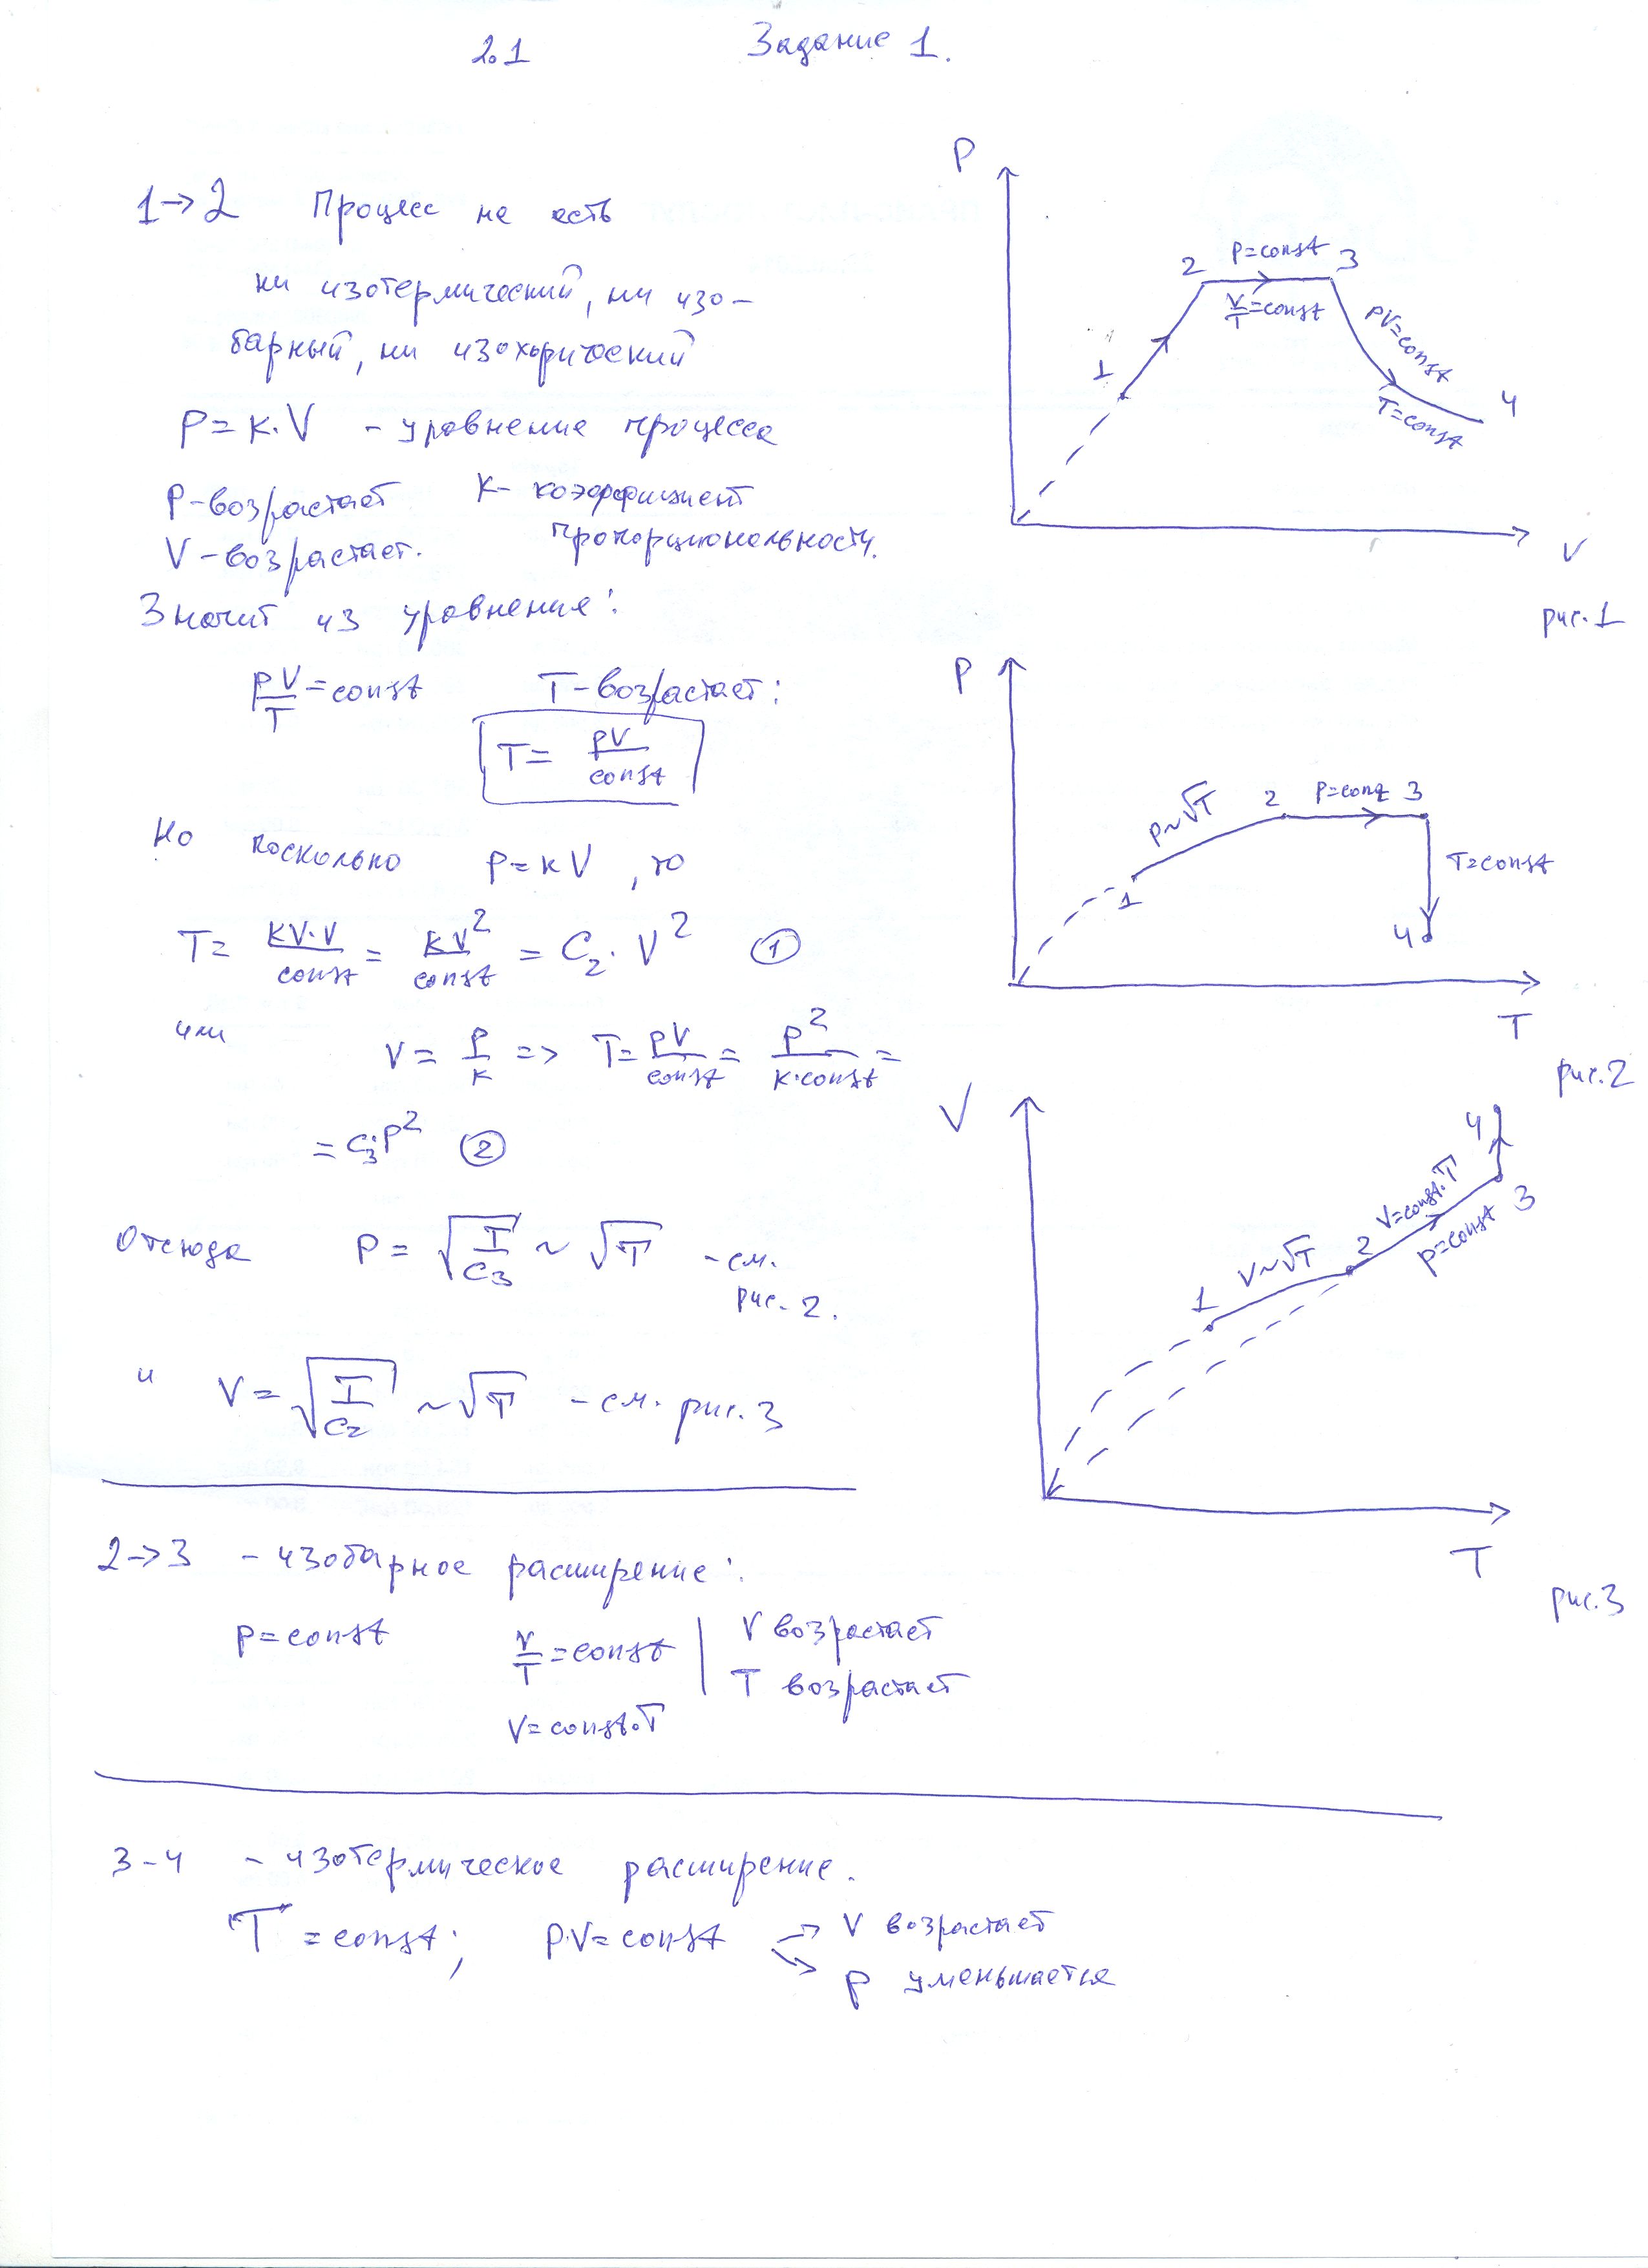 2.1 Задание 1.
1→2 Процесс не есть
ни изотермический, ни изо-
барный, ни изохорический
P=k·V - уравнение процесса
P-возрастает k- коэффициент
V-возрастает. пропорциональности.
Значит из уравнения:
pV/T=const T-возрастает:
T= pV/const
Но поскольку p=kV, то
T= kV·V/const = kV²/const = C₂·V² ①
или
V= p/k => T= pV/const = p²/k·const =
= C₃·p² ②
Отсюда P= √(T/C₃) ~ √T - см.
рис. 2.
и V= √(T/C₂) ~ √T - см. рис. 3
2→3 - изобарное расширение:
p=const V/T=const V возрастает
T возрастает
V=const·T
3-4 - изотермическое расширение.
T=const; p·V=const V возрастает
p уменьшается
P
2 p=const 3
V/T=const
pV=const
1
T=const
4
V
рис.1
P
p~√T 2 p=const 3
T=const
1
4
T
рис.2
V
4
V=const·T
3
p=const
2
V~√T
1
T
рис.3